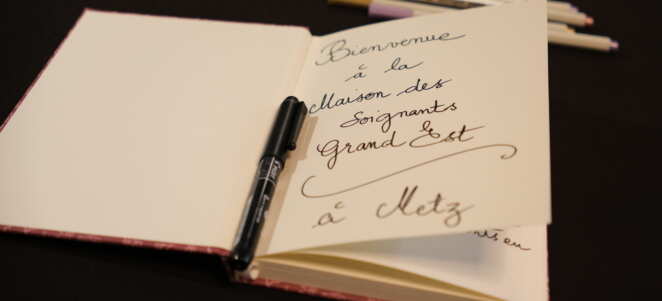 Bienvenue
à la
Maison des
Soignants
Grand Est
à Metz
en